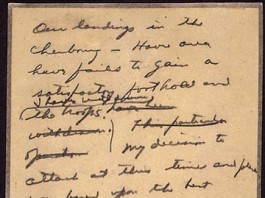 Our landings in the
Cherbourg - Havre area
have failed to gain a
satisfactory foothold and
I have withdrawn
the troops. have been
withdrawn. This particular
operation My decision to
attack at this time and place
was based upon the best